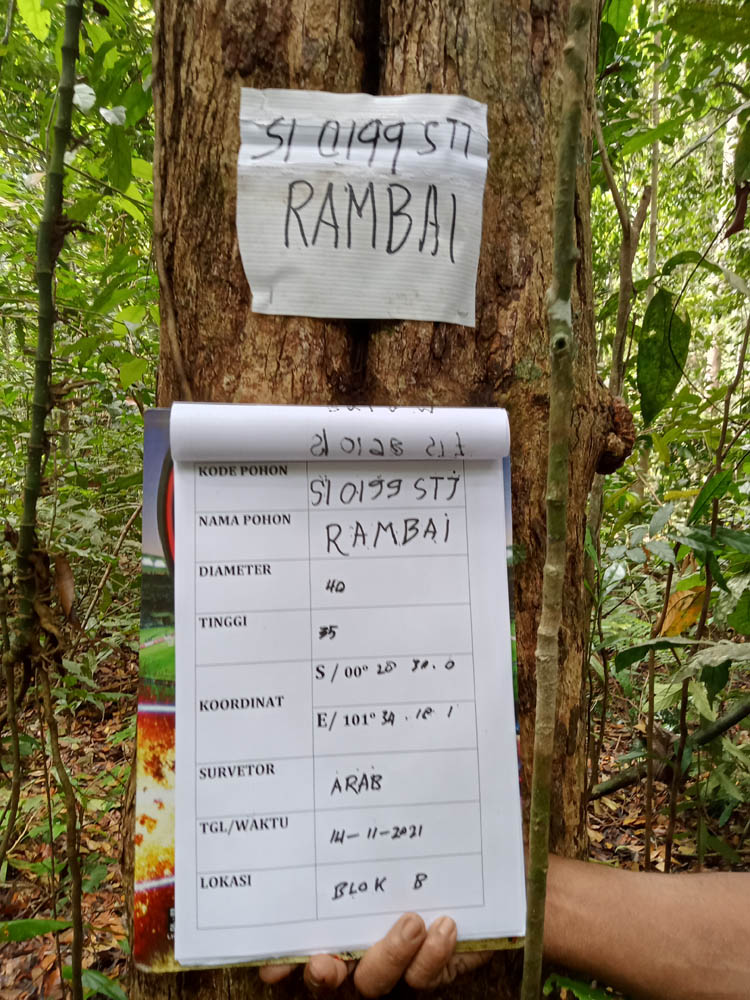 SI 0199 STJ
RAMBAI
SI 0128 STJ
KODE POHON SI 0199 STJ
NAMA POHON RAMBAI
DIAMETER 40
TINGGI 35
KOORDINAT
S/ 00° 28 30.0
E/ 101° 34.18 1
SURVETOR ARAB
TGL/WAKTU 14-11-2021
LOKASI BLOK B